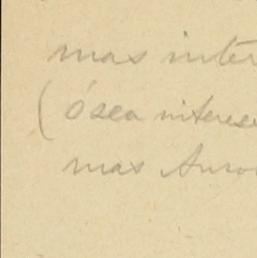 mas inter
(ósea interese
mas